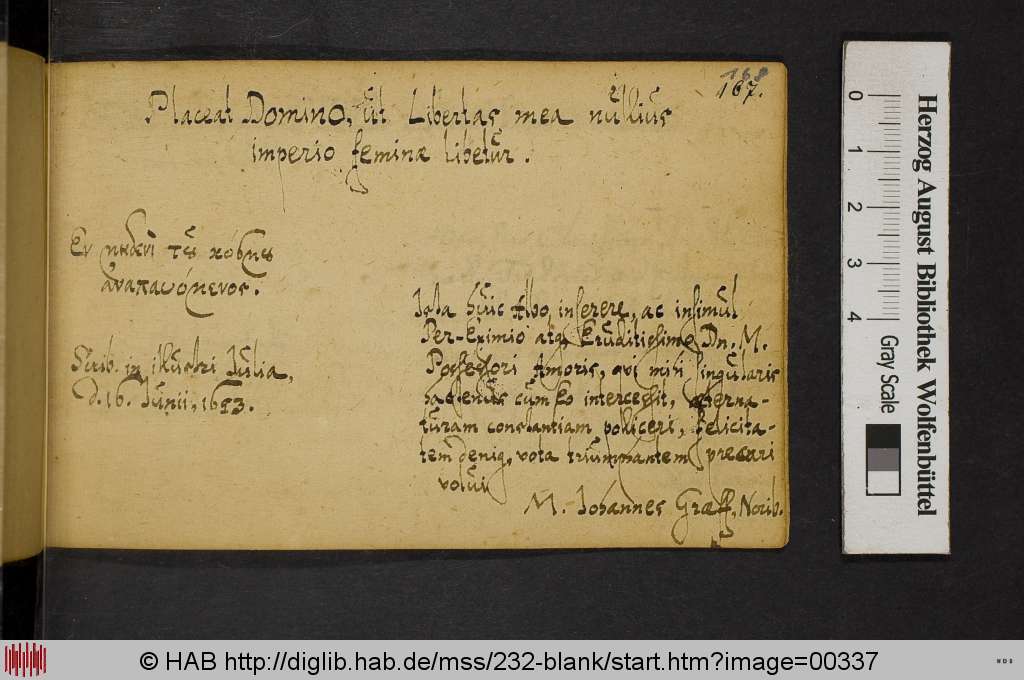 168
167.
Placeat Domino, ut Libertas mea nullius
imperio feminæ libetur.
Εν μηδενὶ τῆς κόρης
ἀναπαυόμενος.
Scrib. in illustri Julia,
d. 16. Junii, 1653.
huic Albo inserere, ac insimul
Per-Eximio atq, Eruditissimo Dn. M.
Possessori Amoris, qui mihi singularis
hactenus cum Eo intercessit, æterna-
turam constantiam polliceri, felicita-
tem deniq, vota triumphantem precari
volui
M. Johannes Græff, Norib.
0
1
2
3
4
Gray Scale
Herzog August Bibliothek Wolfenbüttel
© HAB http://diglib.hab.de/mss/232-blank/start.htm?image=00337